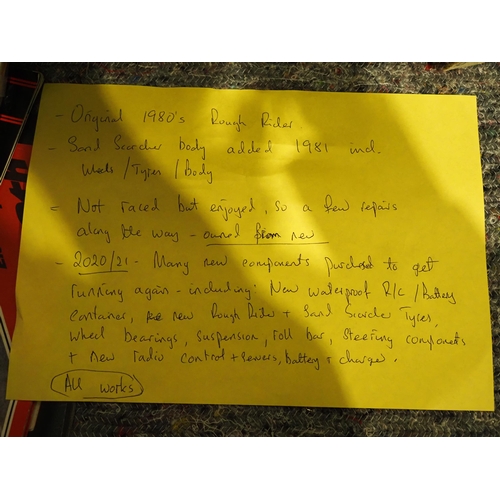 - Original 1980's Rough Rider.
- Sand Scorcher body added 1981 incl.
Wheels / Tyres / Body
- Not raced but enjoyed, so a few repairs
along the way - owned from new
- 2020/21 - Many new components purchased to get
running again - including: New waterproof R/C / Battery
container, new Rough Rider + Sand Scorcher Tyres,
wheel bearings, suspension, roll bar, steering components
+ new radio control + servers, battery + charger.
All works